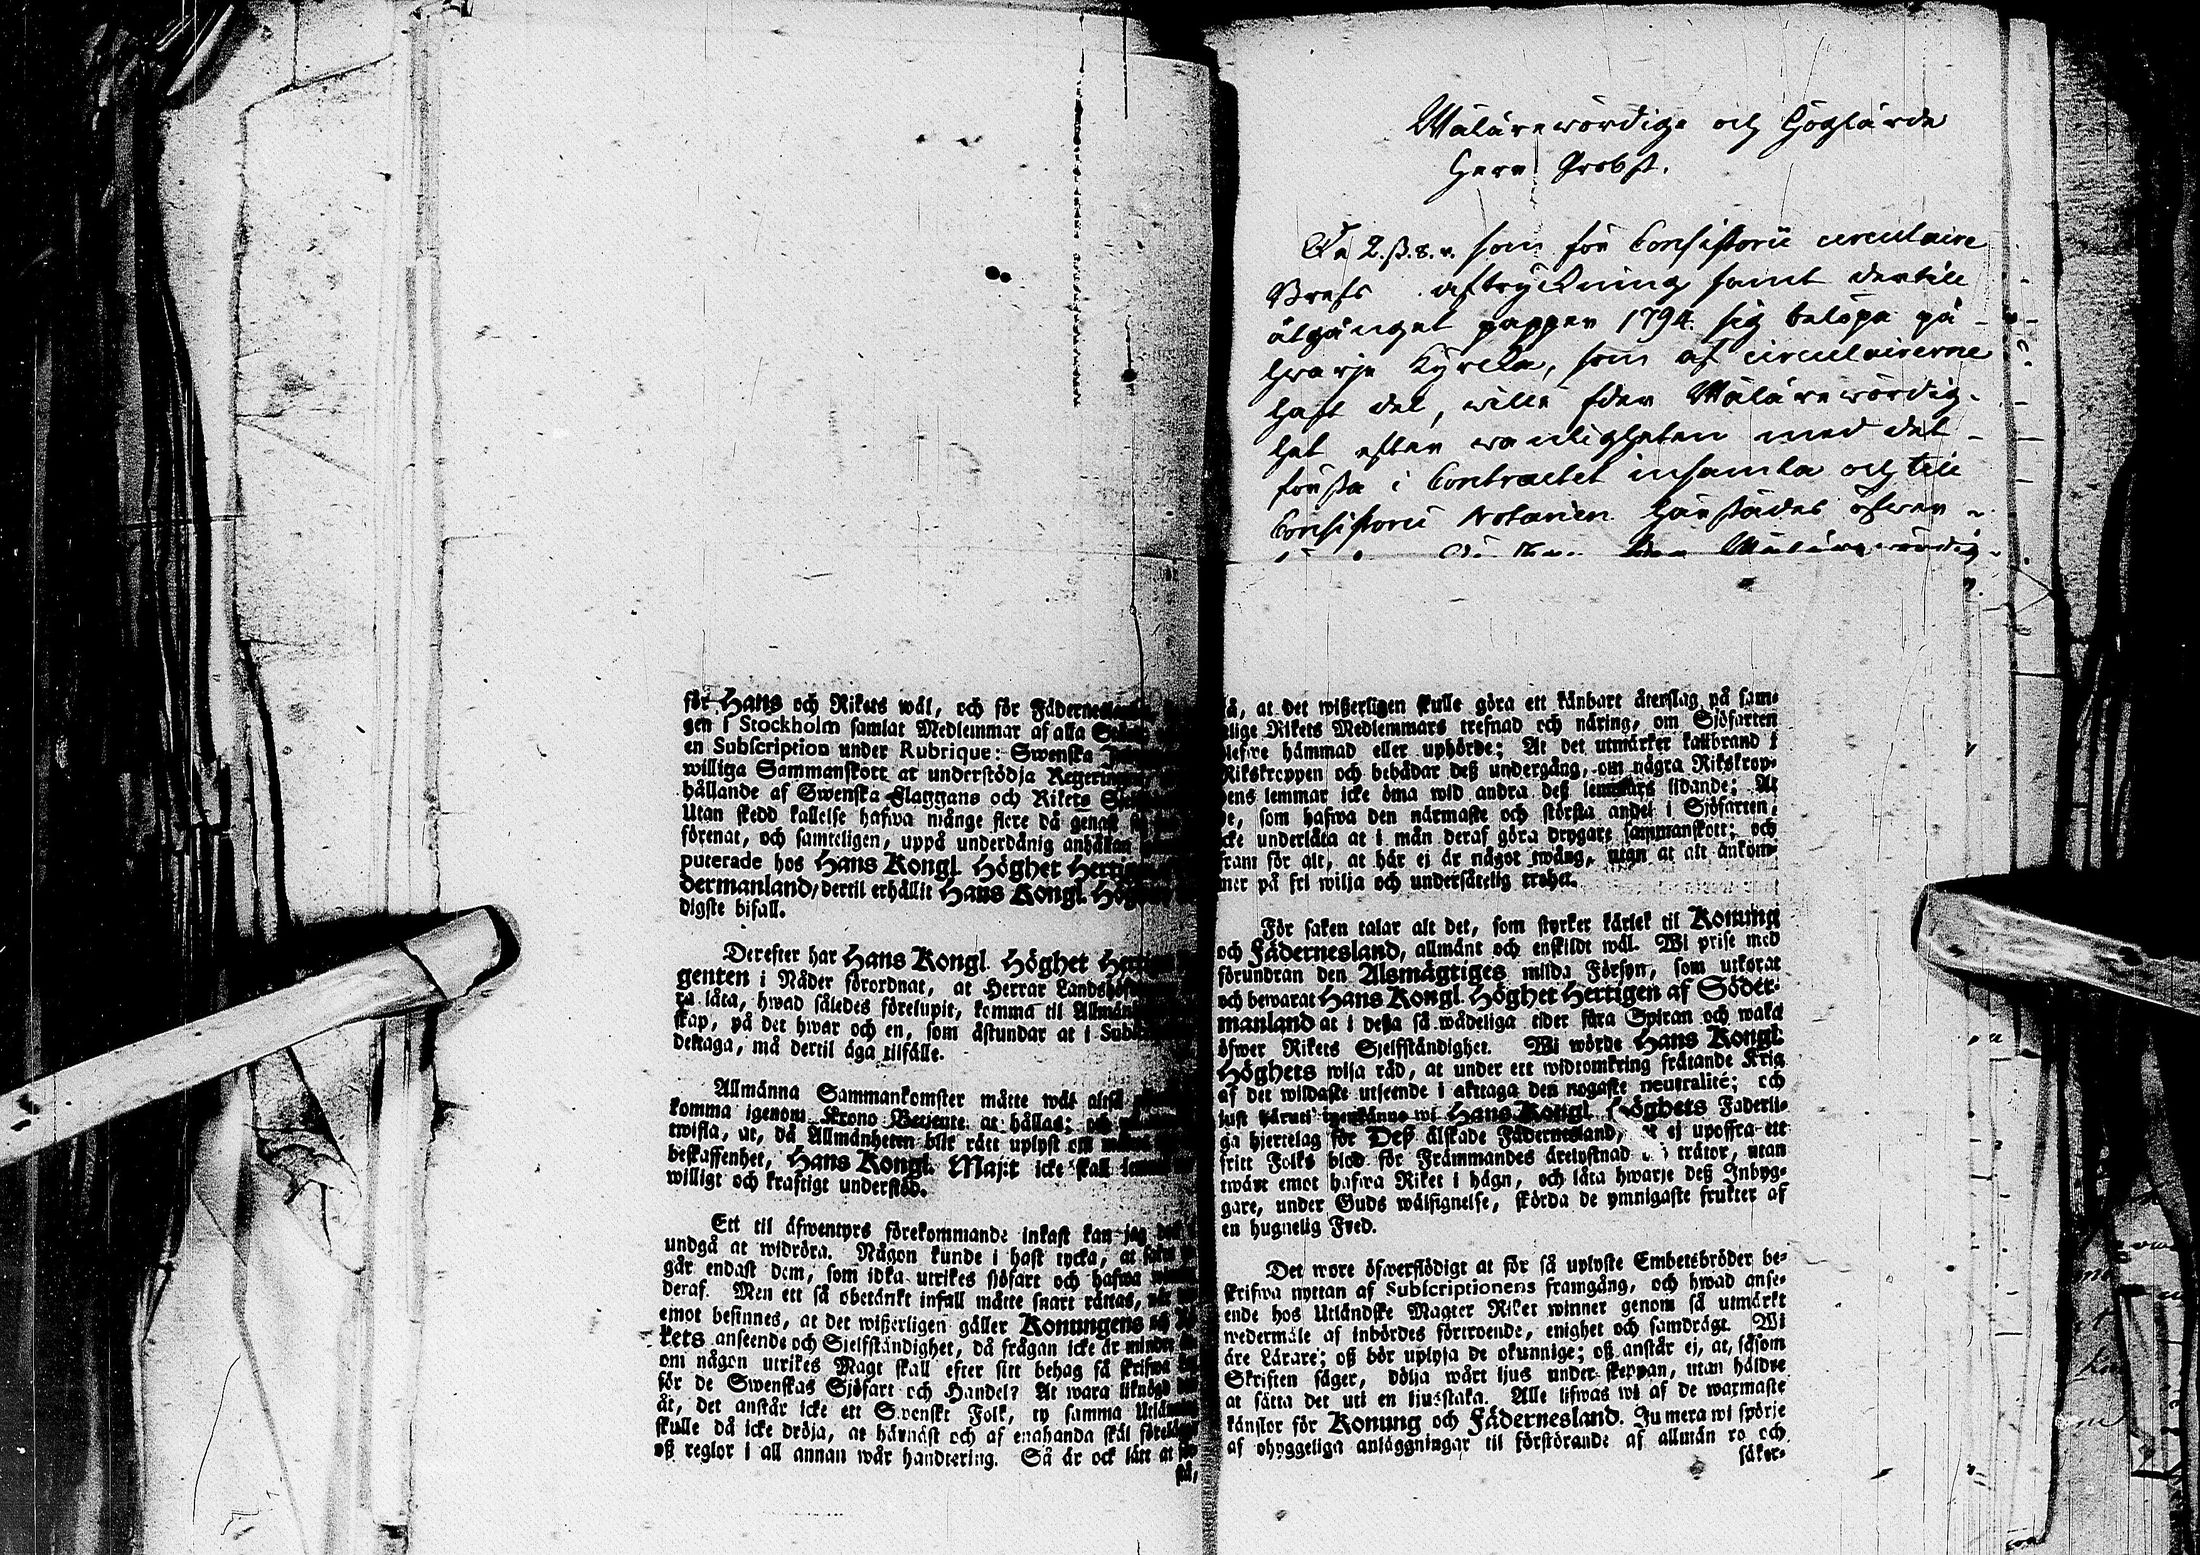 för Hans och Rikets wäl, och för Fädernes
gen i Stockholm samlat Medlemmar af alla
en Subscription under Rubrique: Swenska
williga Sammanskott at understödja Regering
hållande af Swenska Flaggans och Rikets
Utan skedd kallelse hafwa månge flere då genast
förenat, och samteligen, uppå underdånig anhållan
puterade hos Hans Kongl. Höghet Hertig
dermanland, dertil erhållit Hans Kongl. Höghet
digste bifall.
Derefter har Hans Kongl. Höghet Hertig
genten i Nåder förordnat, at Herrar Landshöf
ra låta, hwad således förelupit, komma til Allmän
skap, på det hwar och en, som åstundar at i Sub
deltaga, må dertil äga tilfälle.
Allmänna Sammankomster måtte wäl altså
komma igenom Krono Betjente at hållas; och
twifla, at, då Allmänheten blir rätt uplyst om
beskaffenhet, Hans Kongl. Maj:t icke skall
willigt och kraftigt understöd.
Ett til äfwentyrs förekommande inkast kan jag
undgå at widröra. Någon kunde i hast tycka, at saken
går endast dem, som idka utrikes sjöfart och hafwa
deraf. Men ett så obetänkt infall måtte snart rättas,
emot besinnes, at det wißerligen gäller Konungens och
kets anseende och Sjelfständighet, då frågan icke är mindre
om någon utrikes Magt skall efter sitt behag få skrifwa
för de Swenskas Sjöfart och Handel? At wara liknögd
åt, det anstår icke ett Swenskt Folk, ty samma Utlän
skulle då icke dröja, at härnäst och af enahanda skäl förelägga
oß reglor i all annan wår handtering. Så är ock lätt at för-
stå,
Wälärewördige och Höglärde
Herr Probst.
De 2.ß.8.r. som för Consistorii circulaire
Brefs aftryckning samt dertill
åtgånget papper 1794. sig belöpa på
hwarje Kyrcka, som af circulairerne
haft del, wille Eder Wälärewördig-
het efter wanligheten med det
första i Contractet insamla och till
Consistorii Notarien härstädes öfwer-
Eder Wälärewördig-
så, at det wißerligen skulle göra ett känbart återslag på sam-
elige Rikets Medlemmars trefnad och näring, om Sjöfarten
blefwe hämmad eller uphörde; At det utmärker kallbrand i
Rikskroppen och bebådar deß undergång, om några Rikskrop-
pens lemmar icke öma wid andra deß lemmars lidande; At
de, som hafwa den närmaste och största andel i Sjöfarten,
icke underlåta at i mån deraf göra drygare sammanskott; och
fram för alt, at här ei är något twång, utan at alt ankom-
mer på fri wilja och undersåtelig trohet.
För saken talar alt det, som styrker kärlek til Konung
och Fädernesland, allmänt och enskildt wäl. Wi prise med
förundran den Alsmägtiges milda Försyn, som utkorat
och bewarat Hans Kongl. Höghet Hertigen af Söder-
manland at i deßa så wådeliga tider föra Spiran och waka
öfwer Rikets Sjelfständighet. Wi wörde Hans Kongl.
Höghets wisa råd, at under ett widtomkring frätande Krig
af det wildaste utseende i akttaga den nogaste neutralité; och
just häruti igenkänne wi Hans Kongl. Höghets Faderli-
ga hjertelag för Deß älskade Fädernesland, at ej upoffra ett
fritt Folks blod för Främmandes ärelystnad och trätor, utan
twärt emot hafwa Riket i hägn, och låta hwarje deß Inbyg-
gare, under Guds wälsignelse, skörda de ymnigaste frukter af
en hugnelig Fred.
Det wore öfwerflödigt at för så uplyste Embetsbröder be-
skrifwa nyttan af Subscriptionens framgång, och hwad anse-
ende hos Utländske Magter Riket winner genom så utmärkt
wedermäle af inbördes förtroende, enighet och samdrägt. Wi
äre Lärare; oß bör uplysa de okunnige; oß anstår ej, at, såsom
Skriften säger, dölja wårt ljus under skeppan, utan håldre
at sätta det uti en ljusstaka. Alle lifwas wi af de warmaste
känslor för Konung och Fädernesland. Ju mera wi spörje
af ohyggeliga anläggningar til förstörande af allmän ro och
säker-